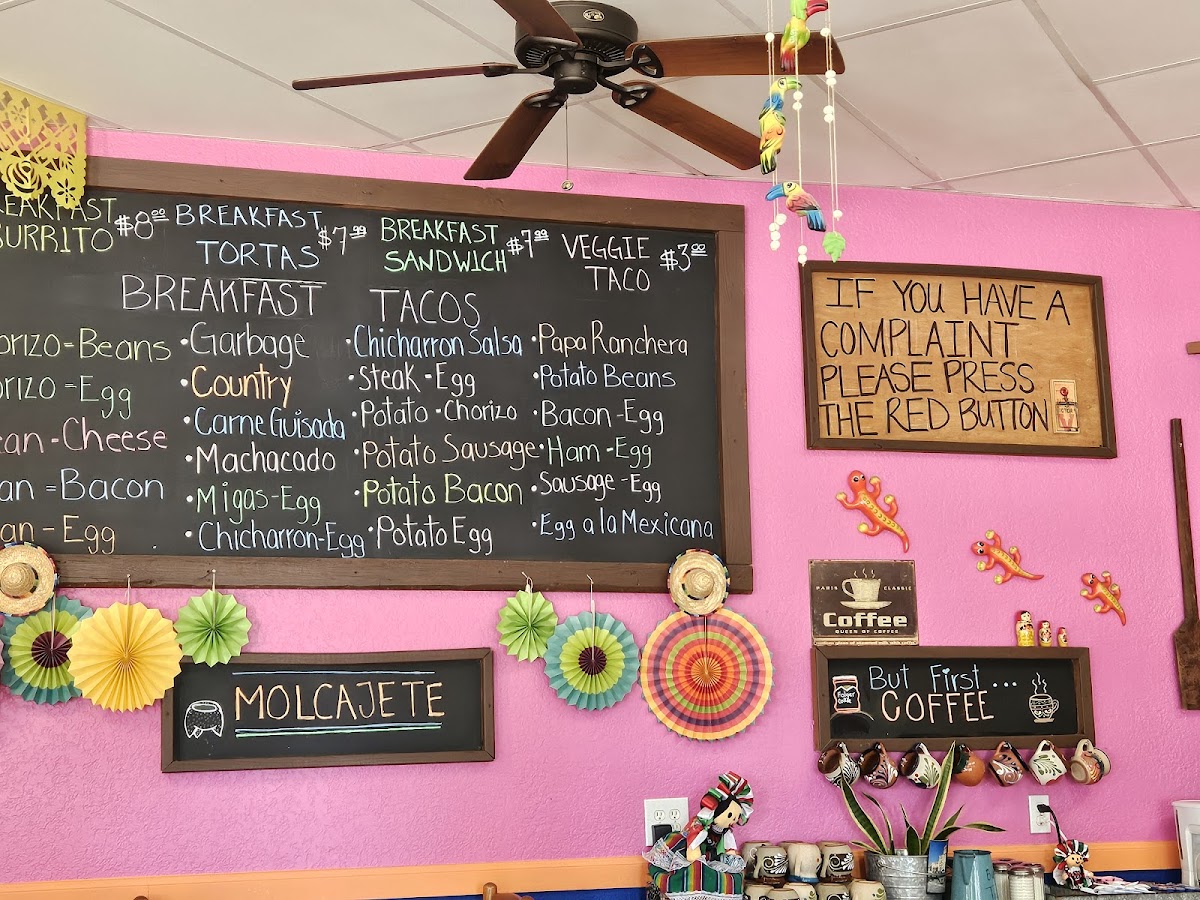 BURRITO $8.00
BREAKFAST TORTAS $7.99
BREAKFAST SANDWICH $7.99
VEGGIE TACO $3.00
BREAKFAST TACOS
-Beans
-Egg
-Cheese
=Bacon
-Egg
•Garbage
•Country
•Carne Guisada
•Machacado
•Migas-Egg
•Chicharron-Egg
•Chicharron Salsa
•Steak-Egg
•Potato-Chorizo
•Potato Sausage
•Potato Bacon
•Potato Egg
•Papa Ranchera
•Potato Beans
•Bacon-Egg
•Ham-Egg
•Sausage-Egg
•Egg a la Mexicana
IF YOU HAVE A
COMPLAINT
PLEASE PRESS
THE RED BUTTON
PARIS CLASSIC
Coffee
QUEEN OF COFFEE
But First...
COFFEE
MOLCAJETE